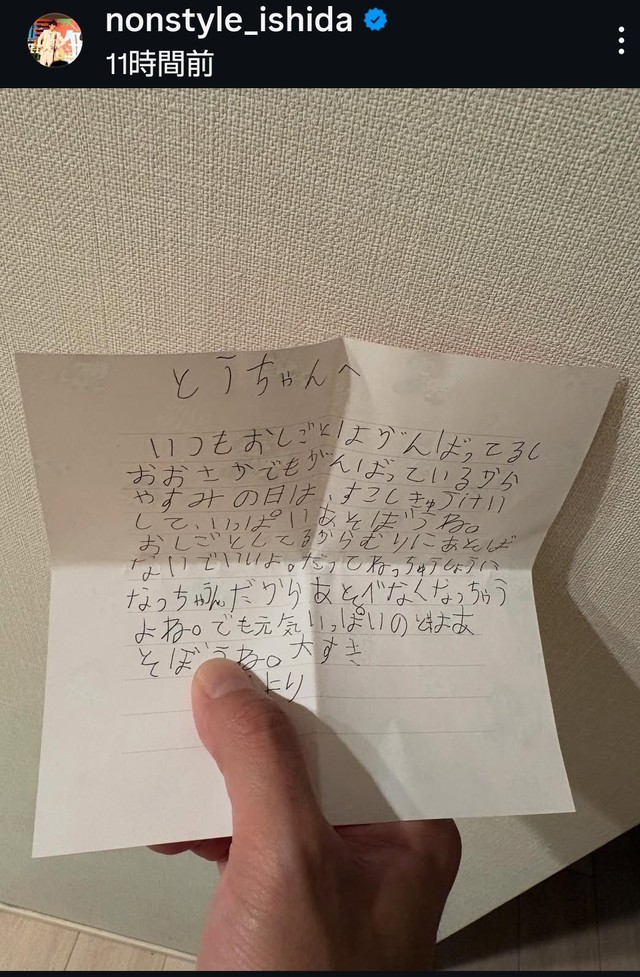 nonstyle_ishida
11時間前
とうちゃんへ
いつもおしごとはがんばってるし
おおさかでもがんばっているから
やすみの日は、すこしきゅうけい
して、いっぱいあそぼうね。
おしごとしてるからむりにあそば
ないでいいよ。だってねっちゅうしょうに
なっちゃんだからあそべなくなっちゃう
よね。でも元気いっぱいのときはあ
そぼうね。大すき
より